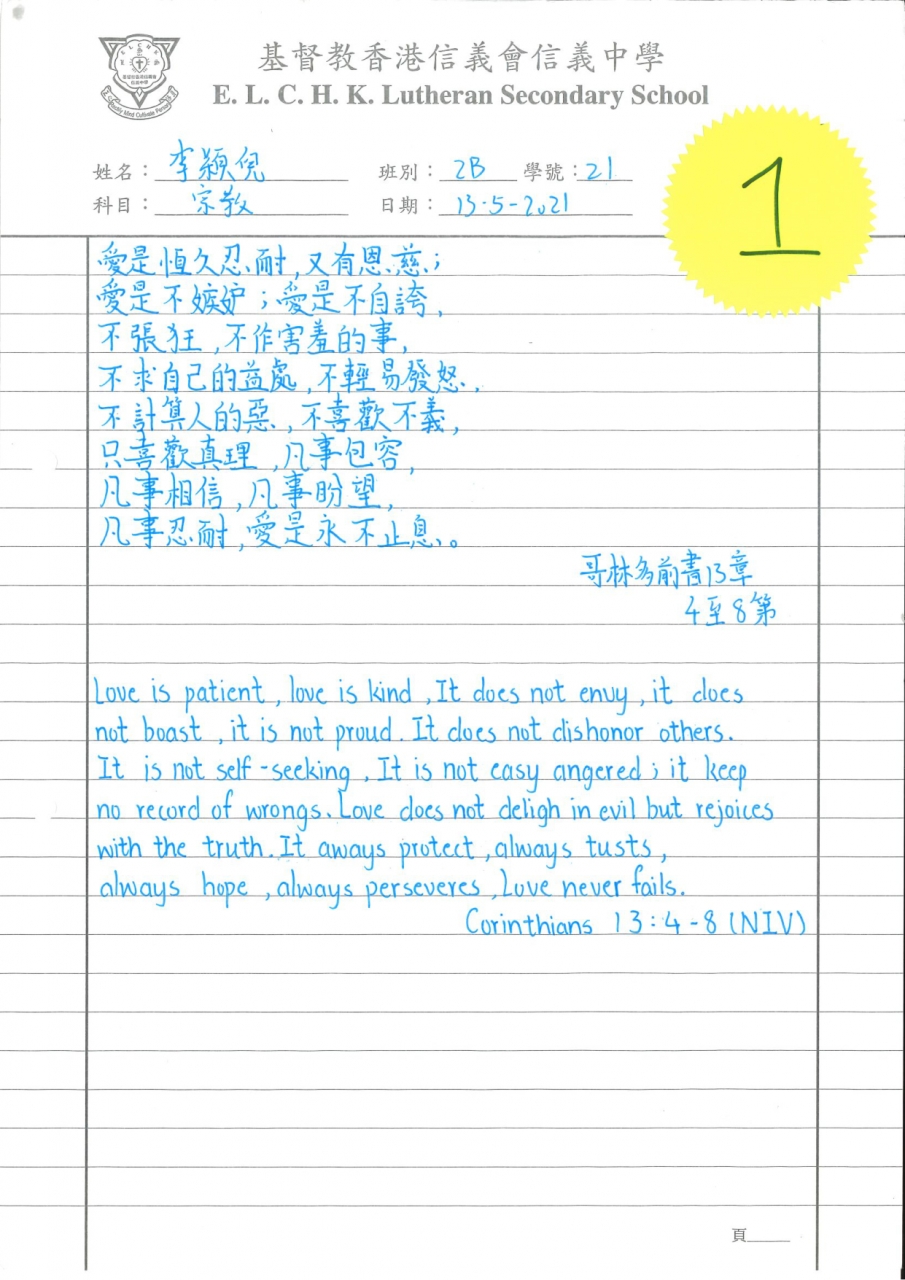 基督教香港信義會信義中學
E. L. C. H. K. Lutheran Secondary School
姓名：李穎兒 班別：2B 學號：21
科目：宗教 日期：13-5-2021
1
愛是恆久忍耐,又有恩慈;
愛是不嫉妒;愛是不自誇,
不張狂,不作害羞的事,
不求自己的益處,不輕易發怒,
不計算人的惡,不喜歡不義,
只喜歡真理,凡事包容,
凡事相信,凡事盼望,
凡事忍耐,愛是永不止息。
哥林多前書13章
4至8第
Love is patient, love is kind, It does not envy, it does
not boast, it is not proud. It does not dishonor others.
It is not self-seeking, It is not easy angered; it keep
no record of wrongs. Love does not deligh in evil but rejoices
with the truth. It aways protect, always tusts,
always hope, always perseveres, Love never fails.
Corinthians 13:4-8 (NIV)
頁